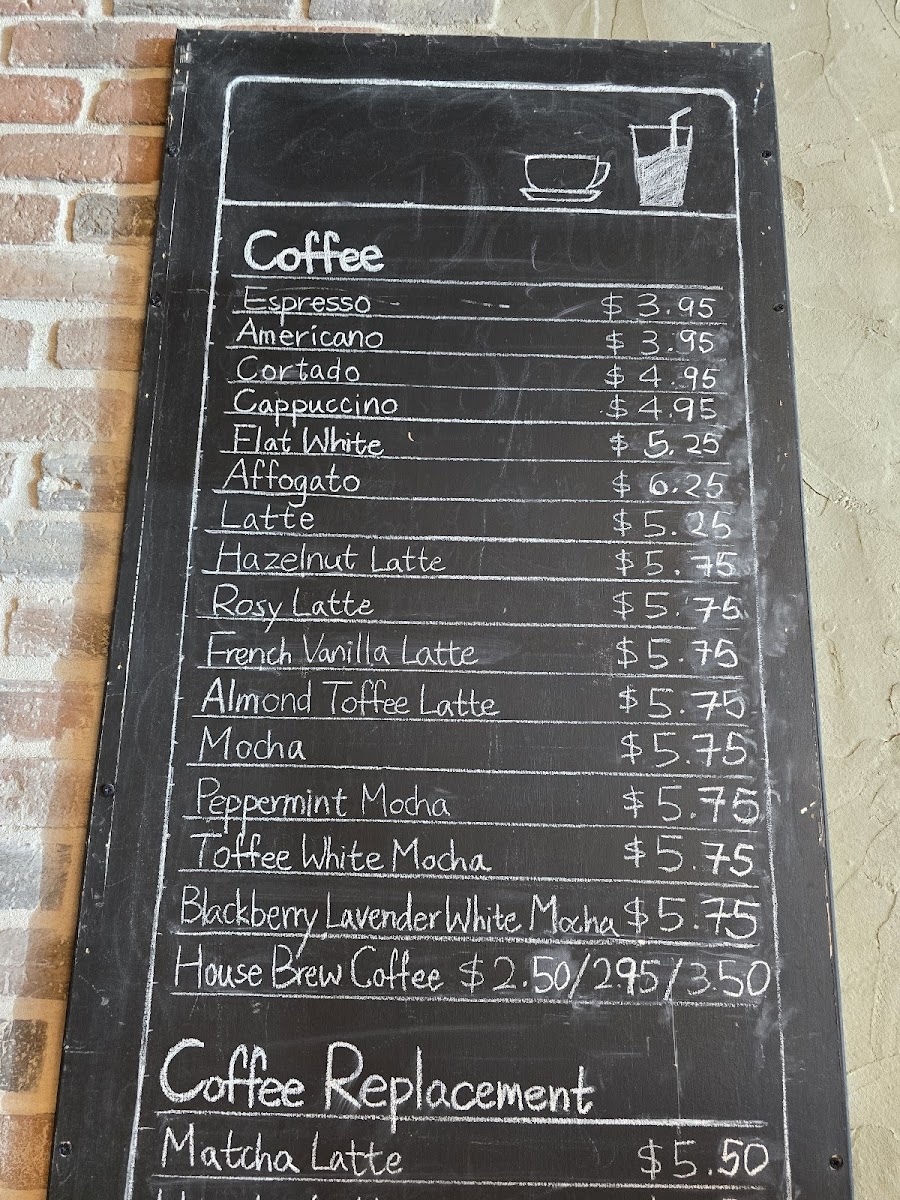 Coffee
Espresso $ 3.95
Americano $ 3.95
Cortado $ 4.95
Cappuccino $ 4.95
Flat White $ 5.25
Affogato $ 6.25
Latte $ 5.25
Hazelnut Latte $ 5.75
Rosy Latte $ 5.75
French Vanilla Latte $ 5.75
Almond Toffee Latte $ 5.75
Mocha $ 5.75
Peppermint Mocha $ 5.75
Toffee White Mocha $ 5.75
Blackberry Lavender White Mocha $ 5.75
House Brew Coffee $ 2.50/295/3.50
Coffee Replacement
Matcha Latte $ 5.50